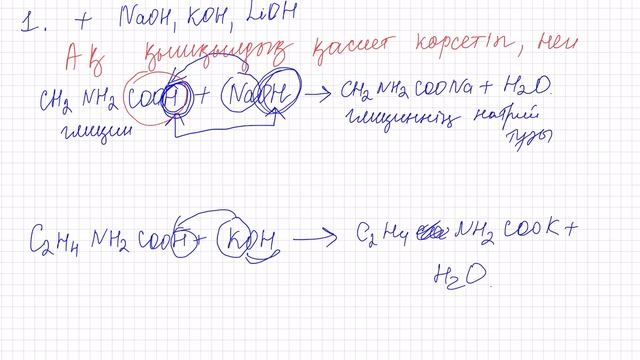 1. + NaOH, KOH, LiOH
АҚ қышқылдық қасиет көрсетіп, неи
CH2 NH2 COOH + NaOH → CH2 NH2 COONa + H2O.
глицин глициннің натрий
тұзы
C2H4 NH2 COOH + KOH → C2H4 NH2 COOK +
H2O.